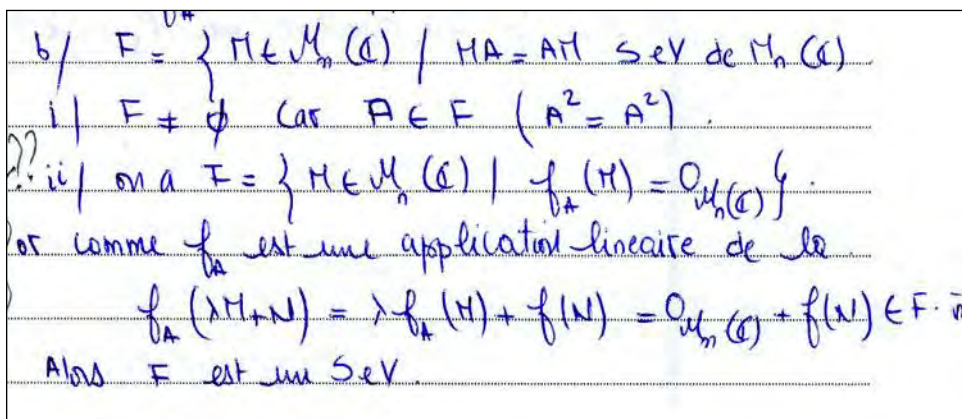 b/ F = { M ∈ M_n(ℂ) / MA = AM SeV de M_n(ℂ)
i/ F ≠ ∅ car A ∈ F (A² = A²).
?? ii/ on a F = { M ∈ M_n(ℂ) | f_A(M) = O_{M_n(ℂ)} }.
or comme f_A est une application lineaire de la
f_A(λM+N) = λf_A(M) + f(N) = O_{M_n(ℂ)} + f(N) ∈ F.
Alors F est un SeV.